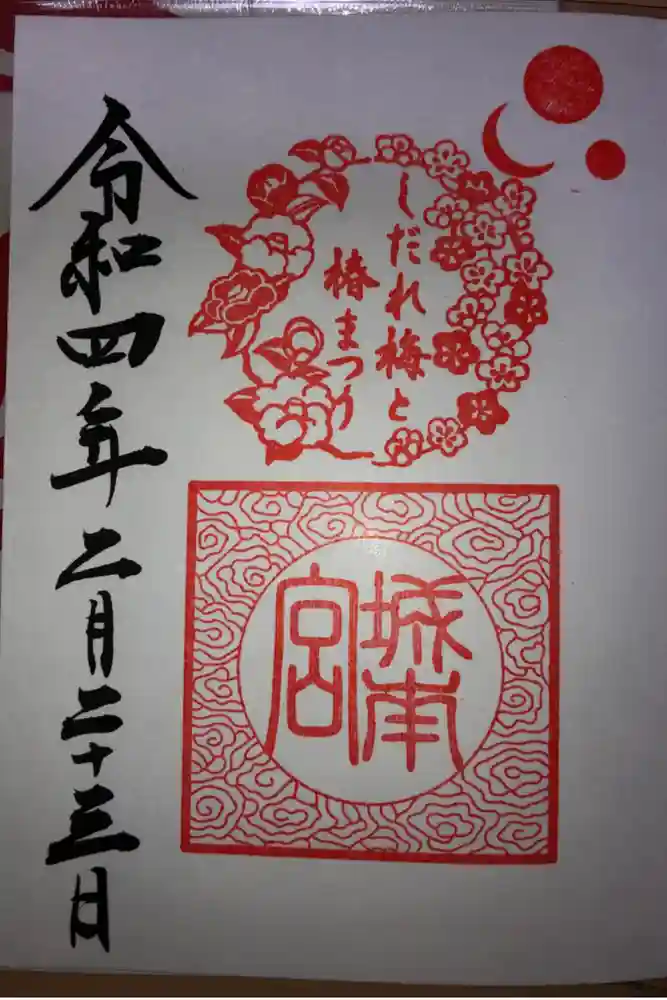 しだれ梅と
椿まつり
城南
宮
令和四年二月二十三日